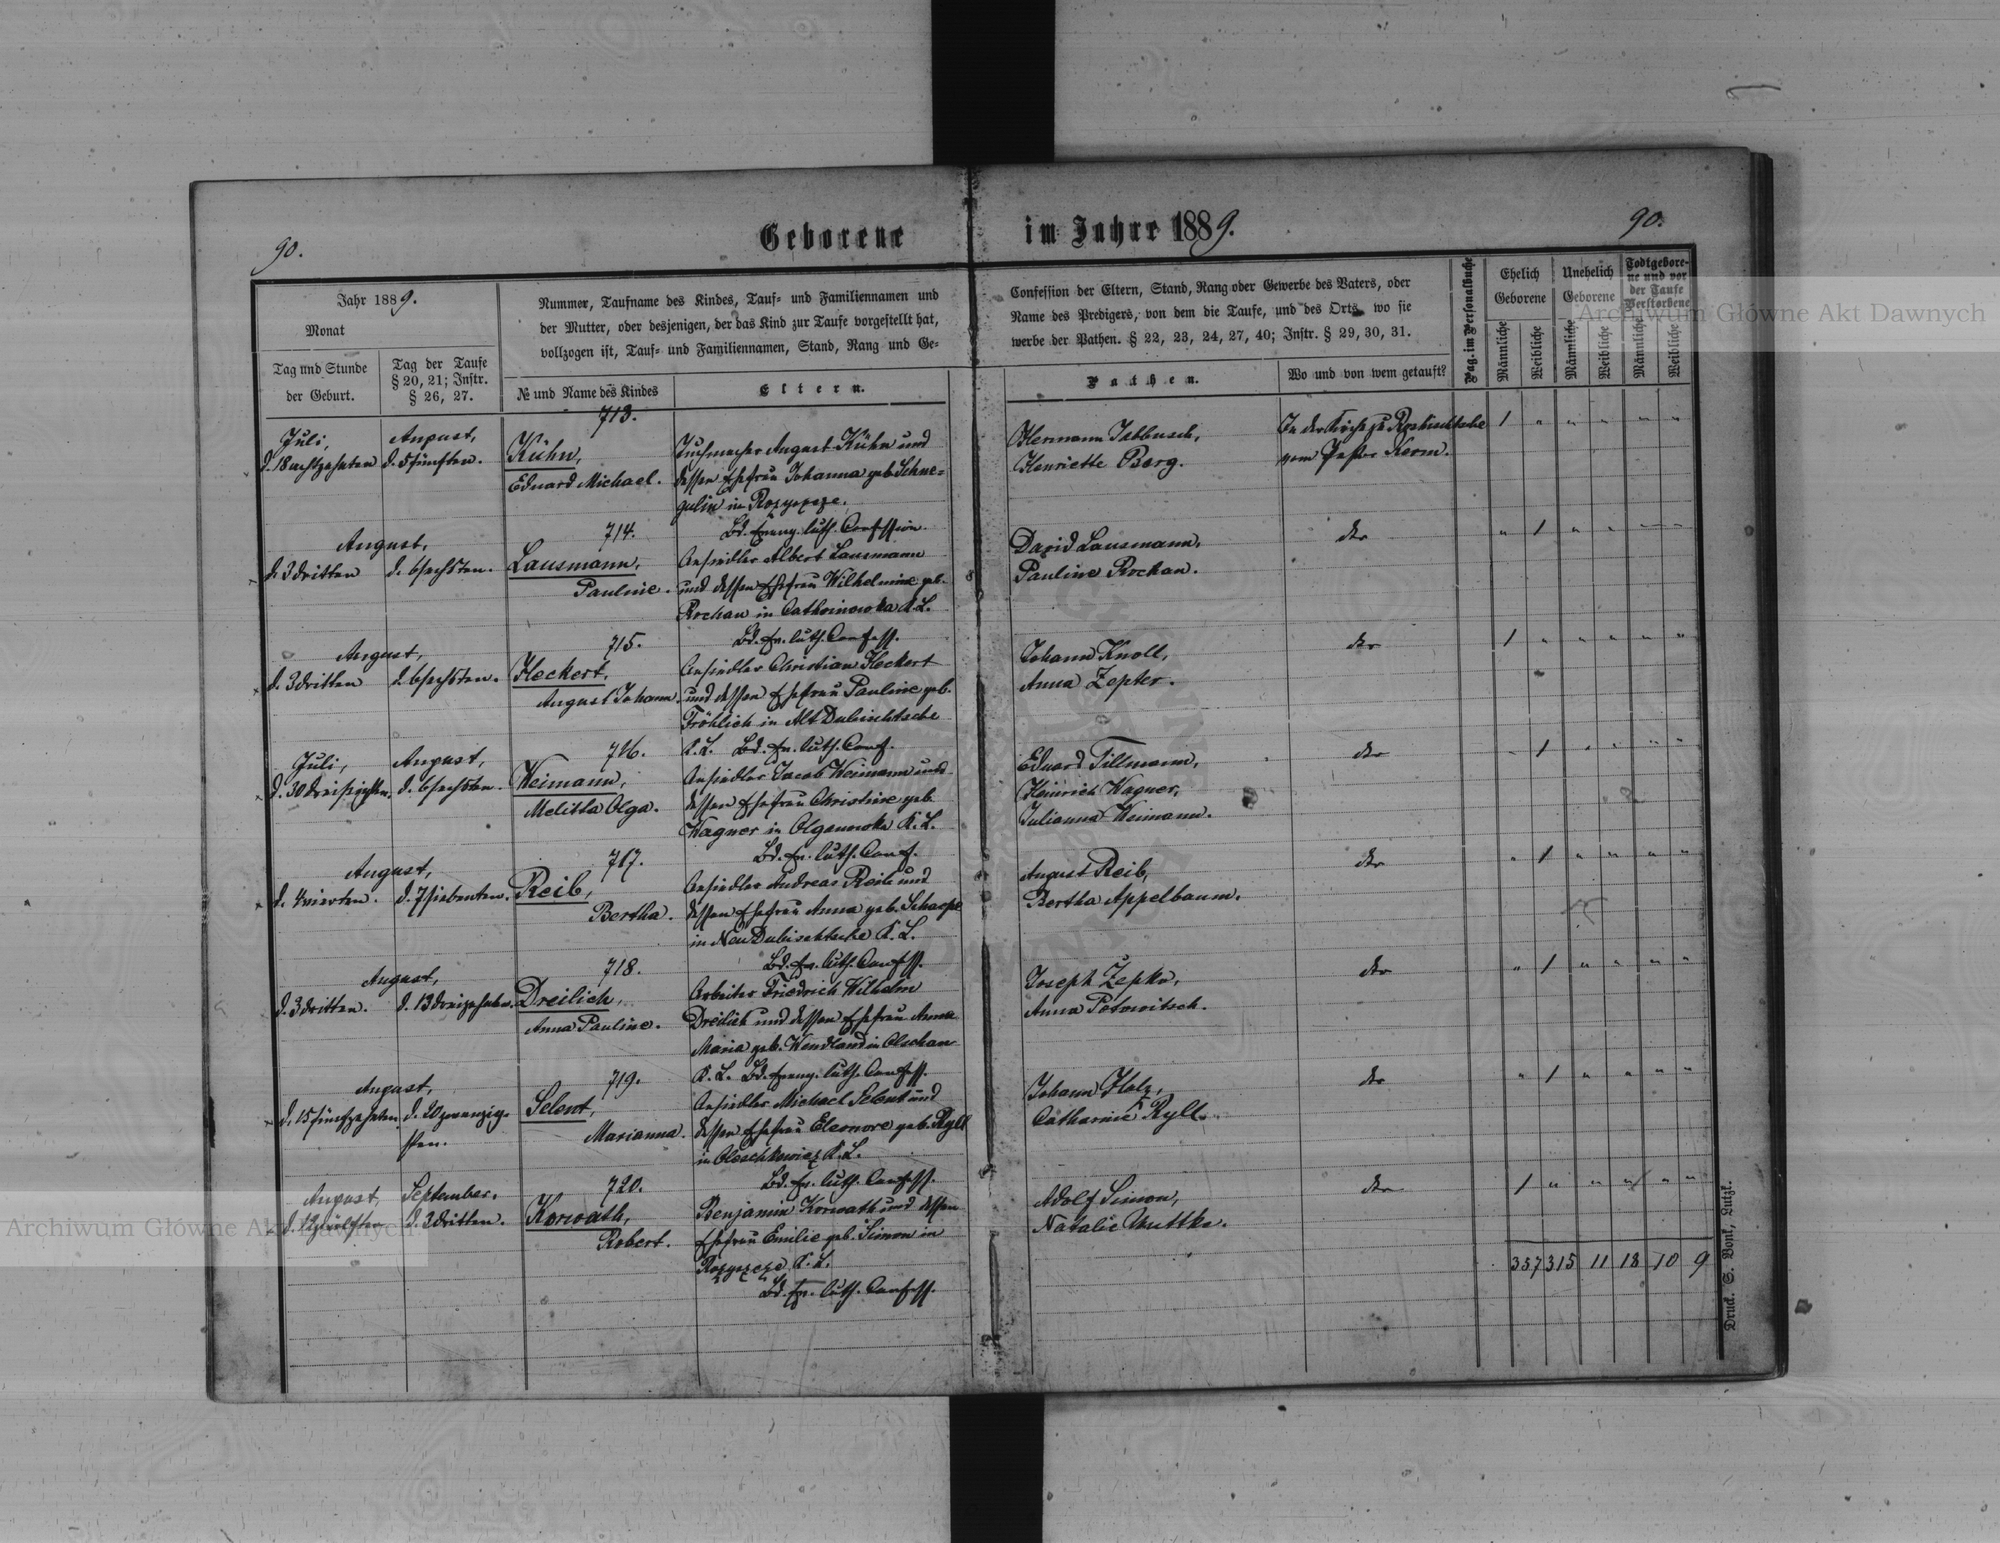 90.
Geborene im Jahre 1889.
90.
Jahr 1889.
Monat
Tag und Stunde
der Geburt.
Tag der Taufe
§ 20, 21; Instr.
§ 26, 27.
Nummer, Taufname des Kindes, Tauf- und Familiennamen und
der Mutter, oder desjenigen, der das Kind zur Taufe vorgestellt hat,
vollzogen ist, Tauf- und Familiennamen, Stand, Rang und Ge-
№ und Name des Kindes
Eltern.
Confession der Eltern, Stand, Rang oder Gewerbe des Vaters, oder
Name des Predigers, von dem die Taufe, und des Orts, wo sie
werbe der Pathen. § 22, 23, 24, 27, 40; Instr. § 29, 30, 31.
Pathen.
Wo und von wem getauft?
Pag. im Personalbuche
Ehelich
Geborene
Unehelich
Geborene
Todtgebore-
ne und vor
der Taufe
Verstorbene
Männliche
Weibliche
Männliche
Weibliche
Männliche
Weibliche
713.
Juli,
d. 18 achtzehnten
August,
d. 5 fünften.
Kühn,
Eduard Michael.
Tuchmacher August Kühn und
dessen Ehefrau Johanna geb. Schne-
gulin in Rozyszcze.
Bd. Evang. luth. Confession.
Hermann Jabbusch,
Henriette Berg.
In der Kirche zu Roshischtsche
vom Pastor Kerm.
1 " " " " "
714.
August,
d. 3 dritten
d. 6 sechsten.
Lausmann,
Pauline.
Ansiedler Albert Lausmann
und dessen Ehefrau Wilhelmine geb.
Rochau in Cathrinowka K.L.
Bd. Ev. luth. Confess.
David Lausmann,
Pauline Rochau.
dto
" 1 " " " "
715.
August,
d. 3 dritten
d. 6 sechsten.
Heckert,
August Johann.
Ansiedler Christian Heckert
und dessen Ehefrau Pauline geb.
Fröhlich in Alt Dubischtsche
K.L. Bd. Ev. luth. Conf.
Johann Knoll,
Anna Zepter.
dto
1 " " " " "
716.
Juli,
d. 30 dreisigsten.
August,
d. 6 sechsten.
Weimann,
Melitta Olga.
Ansiedler Jacob Weimann und
dessen Ehefrau Christine geb.
Wagner in Olganowka K.L.
Bd. Ev. luth. Conf.
Eduard Tillmann,
Heinrich Wagner,
Julianna Weimann.
dto
" 1 " " " "
717.
August,
d. 4 vierten.
d. 7 siebenten.
Reib,
Bertha.
Ansiedler Andreas Reib und
dessen Ehefrau Anna geb. Schaepe
in Neu Dubischtsche K.L.
Bd. Ev. luth. Confess.
August Reib,
Bertha Appelbaum.
dto
" 1 " " " "
718.
August,
d. 3 dritten.
d. 13 dreizehnten.
Dreilich,
Anna Pauline.
Arbeiter Friedrich Wilhelm
Dreilich und dessen Ehefrau Anna
Maria geb. Wendland in Olschan
K.L. Bd. Evang. luth. Confess.
Joseph
Anna Potowitsch.
dto
" 1 " " " "
719.
August,
d. 15 fünfzehnten
d. 20 zwanzig-
sten.
Selent,
Marianna.
Ansiedler Michael Selent und
dessen Ehefrau Eleonore geb. Ryll
in Oleschkowicz K.L.
Bd. Ev. luth. Confess.
Johann Holz,
Catharine Ryll.
dto
" 1 " " " "
720.
August,
d. 12 zwölften
September,
d. 3 dritten.
Korwath,
Robert.
Benjamin Korwath und dessen
Ehefrau Emilie geb. Simon in
Rozyszcze K.L.
Bd. Ev. luth. Confess.
Adolf Simon,
Natalie Muttke.
dto
1 " " " " "
357 315 11 18 10 9
Druck. S. Bonk, Lutzk.
Archiwum Główne Akt Dawnych
Archiwum Główne Akt Dawnych